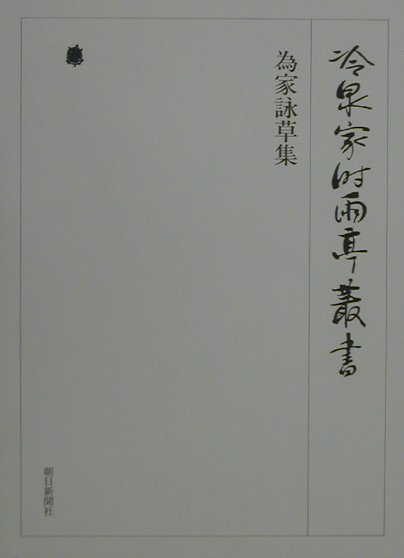 冷泉家時雨亭叢書
為家詠草集
朝日新聞社